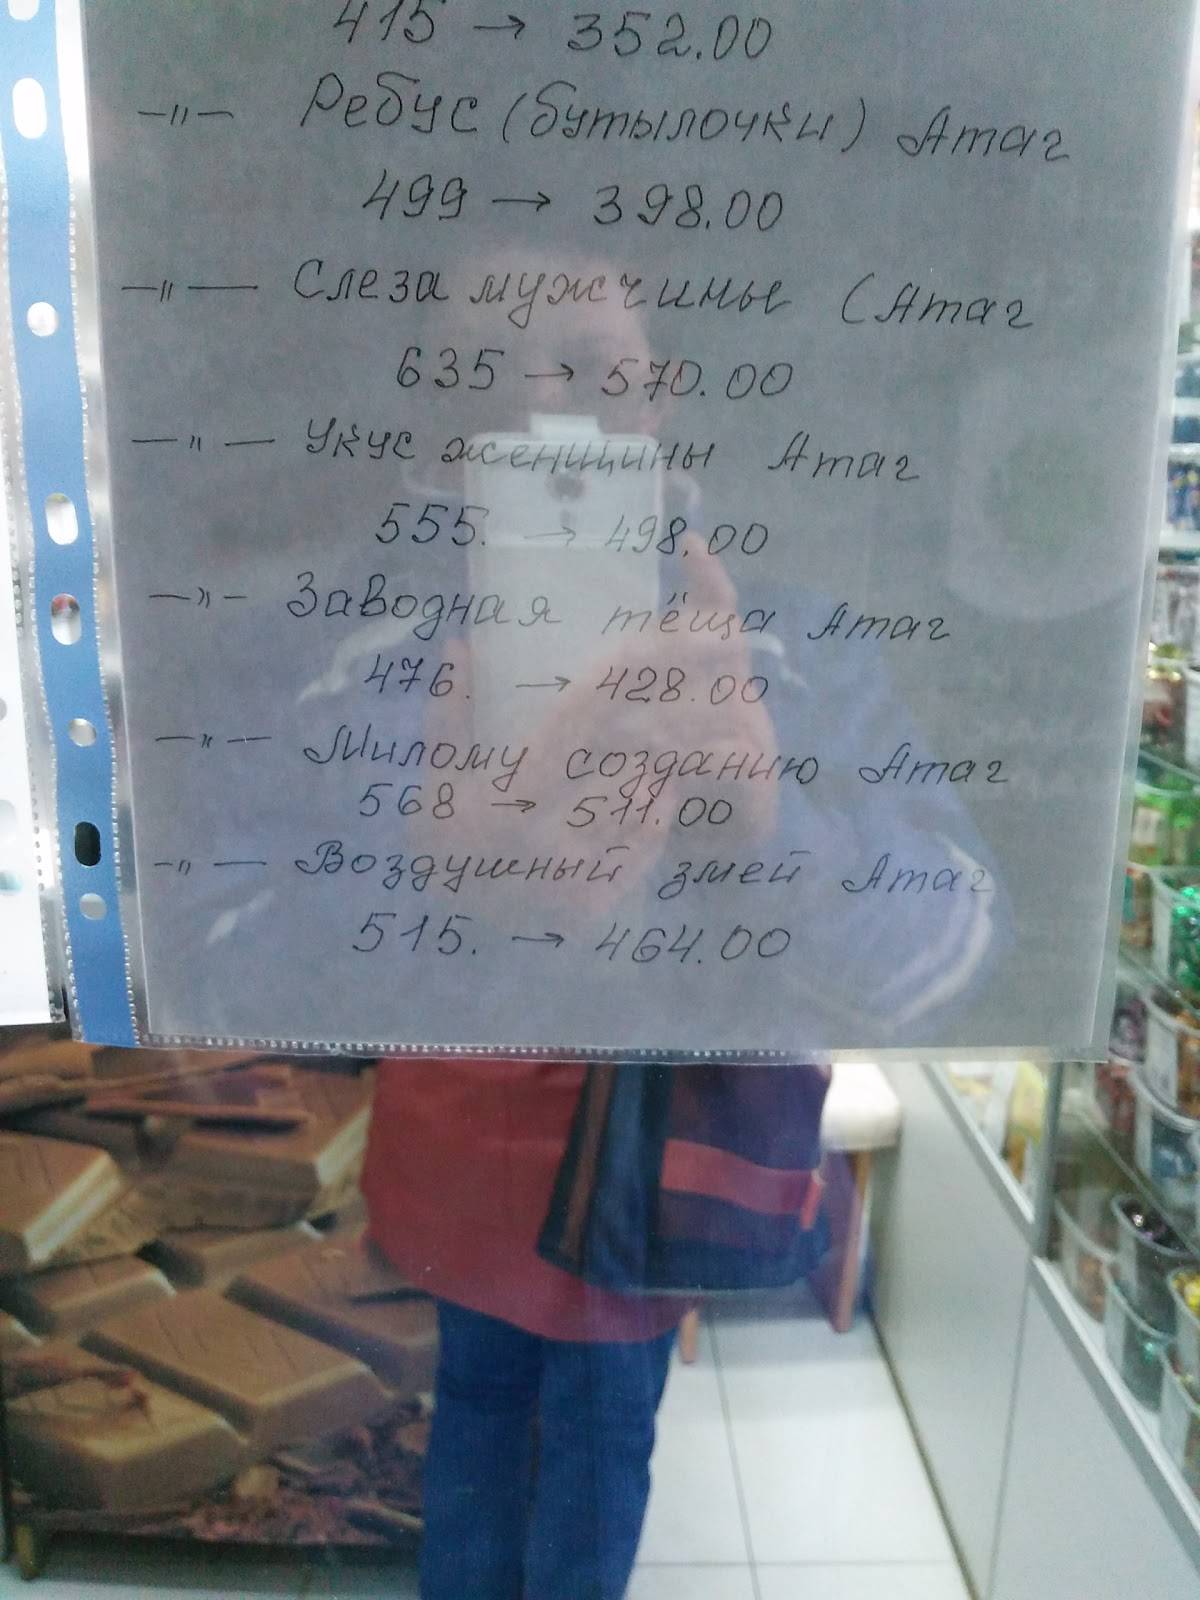 415 → 352.00
—"— Ребус (бутылочки) Атаг
499 → 398.00
—"— Слеза мужчины (Атаг
635 → 570.00
—"— Укус женщины Атаг
555. → 498.00
—"— Заводная тёща Атаг
476. → 428.00
—"— Милому созданию Атаг
568 → 511.00
—"— Воздушный змей Атаг
515. → 464.00